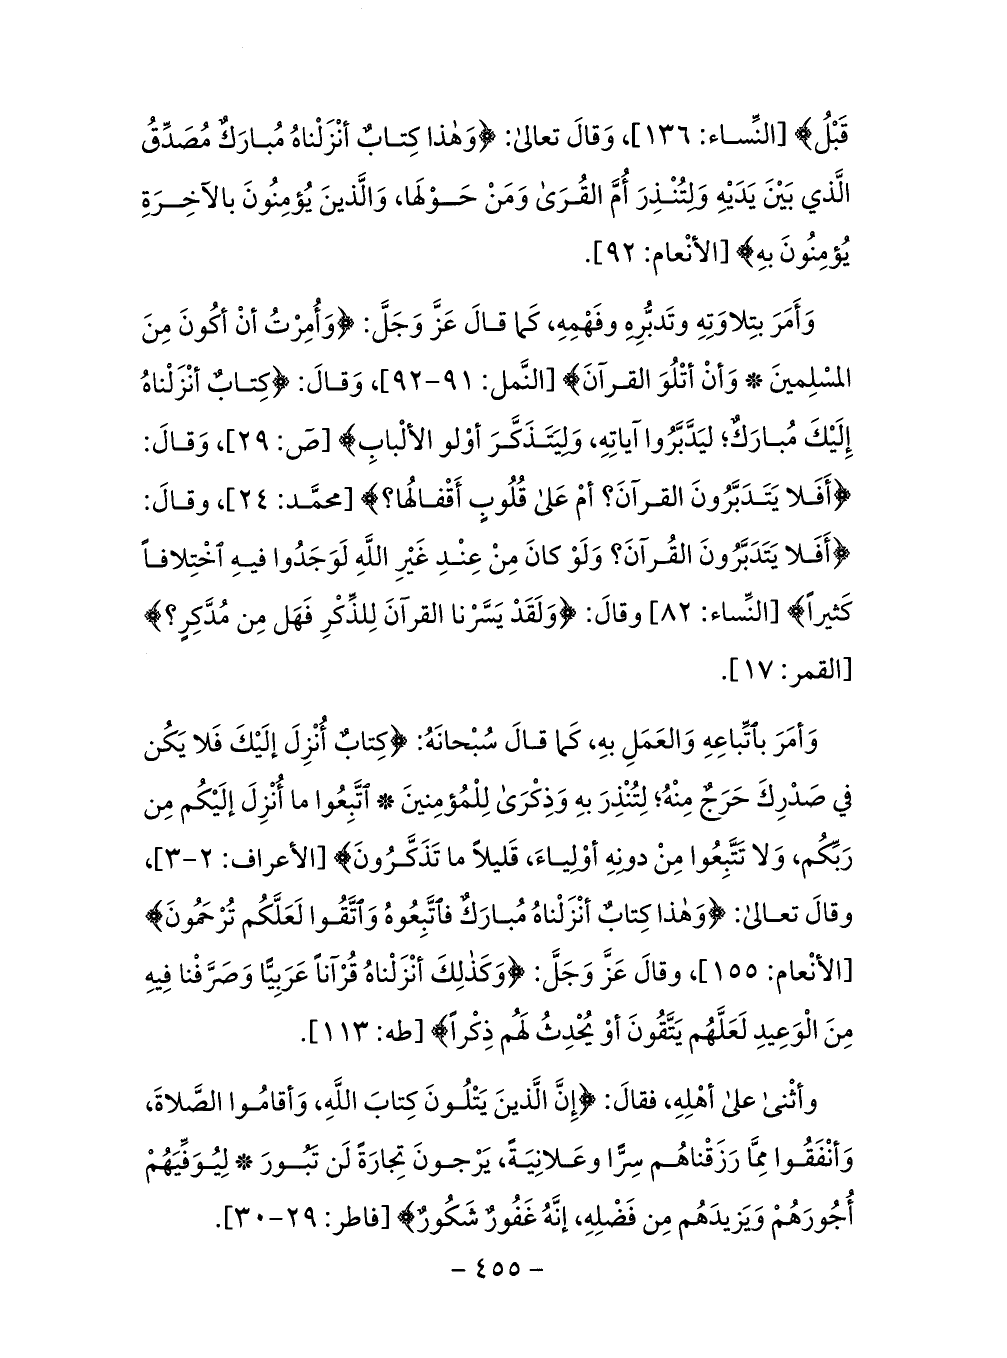 قَبْلُ﴾ [النِّساء: ١٣٦]، وَقالَ تعالىٰ: ﴿وَهٰذا كِتابٌ أَنْزَلْناهُ مُبارَكٌ مُصَدِّقُ
الَّذي بَيْنَ يَدَيْهِ وَلِتُنْذِرَ أُمَّ القُرَىٰ وَمَنْ حَوْلَها، وَالَّذينَ يُؤمِنُونَ بالآخِرَةِ
يُؤمِنُونَ بهِ﴾ [الأنْعام: ٩٢].
وَأَمَرَ بتِلاوَتِهِ وتَدبُّرِهِ وفَهْمِهِ، كَما قالَ عَزَّ وَجَلَّ: ﴿وَأُمِرْتُ أنْ أكُونَ مِنَ
المُسْلِمينَ * وَأنْ أتْلُوَ القرآنَ﴾ [النَّمل: ٩١-٩٢]، وَقالَ: ﴿كِتابٌ أنْزَلْناهُ
إلَيْكَ مُبارَكٌ؛ ليَدَّبَّرُوا آياتِهِ، وَلِيَتَذكَّرَ أوْلو الألْبابِ﴾ [صَ: ٢٩]، وَقالَ:
﴿أَفَلا يَتَدَبَّرُونَ القرآنَ؟ أمْ عَلىٰ قُلُوبٍ أَقْفالُها؟﴾ [محمَّد: ٢٤]، وقالَ:
﴿أَفَلا يَتَدَبَّرُونَ القُرآنَ؟ وَلَوْ كانَ مِنْ عِنْدِ غَيْرِ اللَّهِ لَوَجَدُوا فيهِ ٱخْتِلافاً
كَثيراً﴾ [النِّساء: ٨٢] وقالَ: ﴿وَلَقَدْ يَسَّرْنا القرآنَ لِلذِّكْرِ فَهَل مِن مُدَّكِرٍ؟﴾
[القمر: ١٧].
وَأمَرَ بٱتِّباعِهِ وَالعَمَلِ بهِ، كَما قالَ سُبْحانَهُ: ﴿كِتابٌ أُنْزِلَ إلَيْكَ فَلا يَكُن
في صَدْرِكَ حَرَجٌ مِنْهُ؛ لِتُنْذِرَ بهِ وَذِكْرَىٰ لِلْمُؤمِنينَ * ٱتَّبِعُوا ما أُنْزِلَ إلَيْكُم مِن
رَبِّكُم، وَلا تَتَّبِعُوا مِنْ دونِهِ أوْلِياءَ، قَليلاً ما تَذَكَّرُونَ﴾ [الأعراف: ٢-٣]،
وقالَ تعالىٰ: ﴿وَهٰذا كِتابٌ أنْزَلْناهُ مُبارَكٌ فٱتَّبِعُوهُ وَٱتَّقُوا لَعَلَّكُم تُرْحَمُونَ﴾
[الأنْعام: ١٥٥]، وقالَ عَزَّ وَجَلَّ: ﴿وَكَذٰلِكَ أنْزَلْناهُ قُرْآناً عَرَبِيًّا وَصَرَّفْنا فِيهِ
مِنَ الْوَعِيدِ لَعَلَّهُم يَتَّقُونَ أوْ يُحْدِثُ لَهُم ذِكْراً﴾ [طه: ١١٣].
وأثْنىٰ علىٰ أهْلِهِ، فقالَ: ﴿إنَّ الَّذينَ يَتْلُونَ كِتابَ اللَّهِ، وَأقامُوا الصَّلاةَ،
وَأنْفَقُوا مِمَّا رَزَقْناهُم سِرًّا وعَلانِيَةً، يَرْجونَ تِجارَةً لَن تَبُورَ * لِيُوَفِّيَهُمْ
أُجُورَهُمْ وَيَزيدَهُم مِن فَضْلِهِ، إنَّهُ غَفُورٌ شَكُورٌ﴾ [فاطر: ٢٩-٣٠].
- ٤٥٥ -